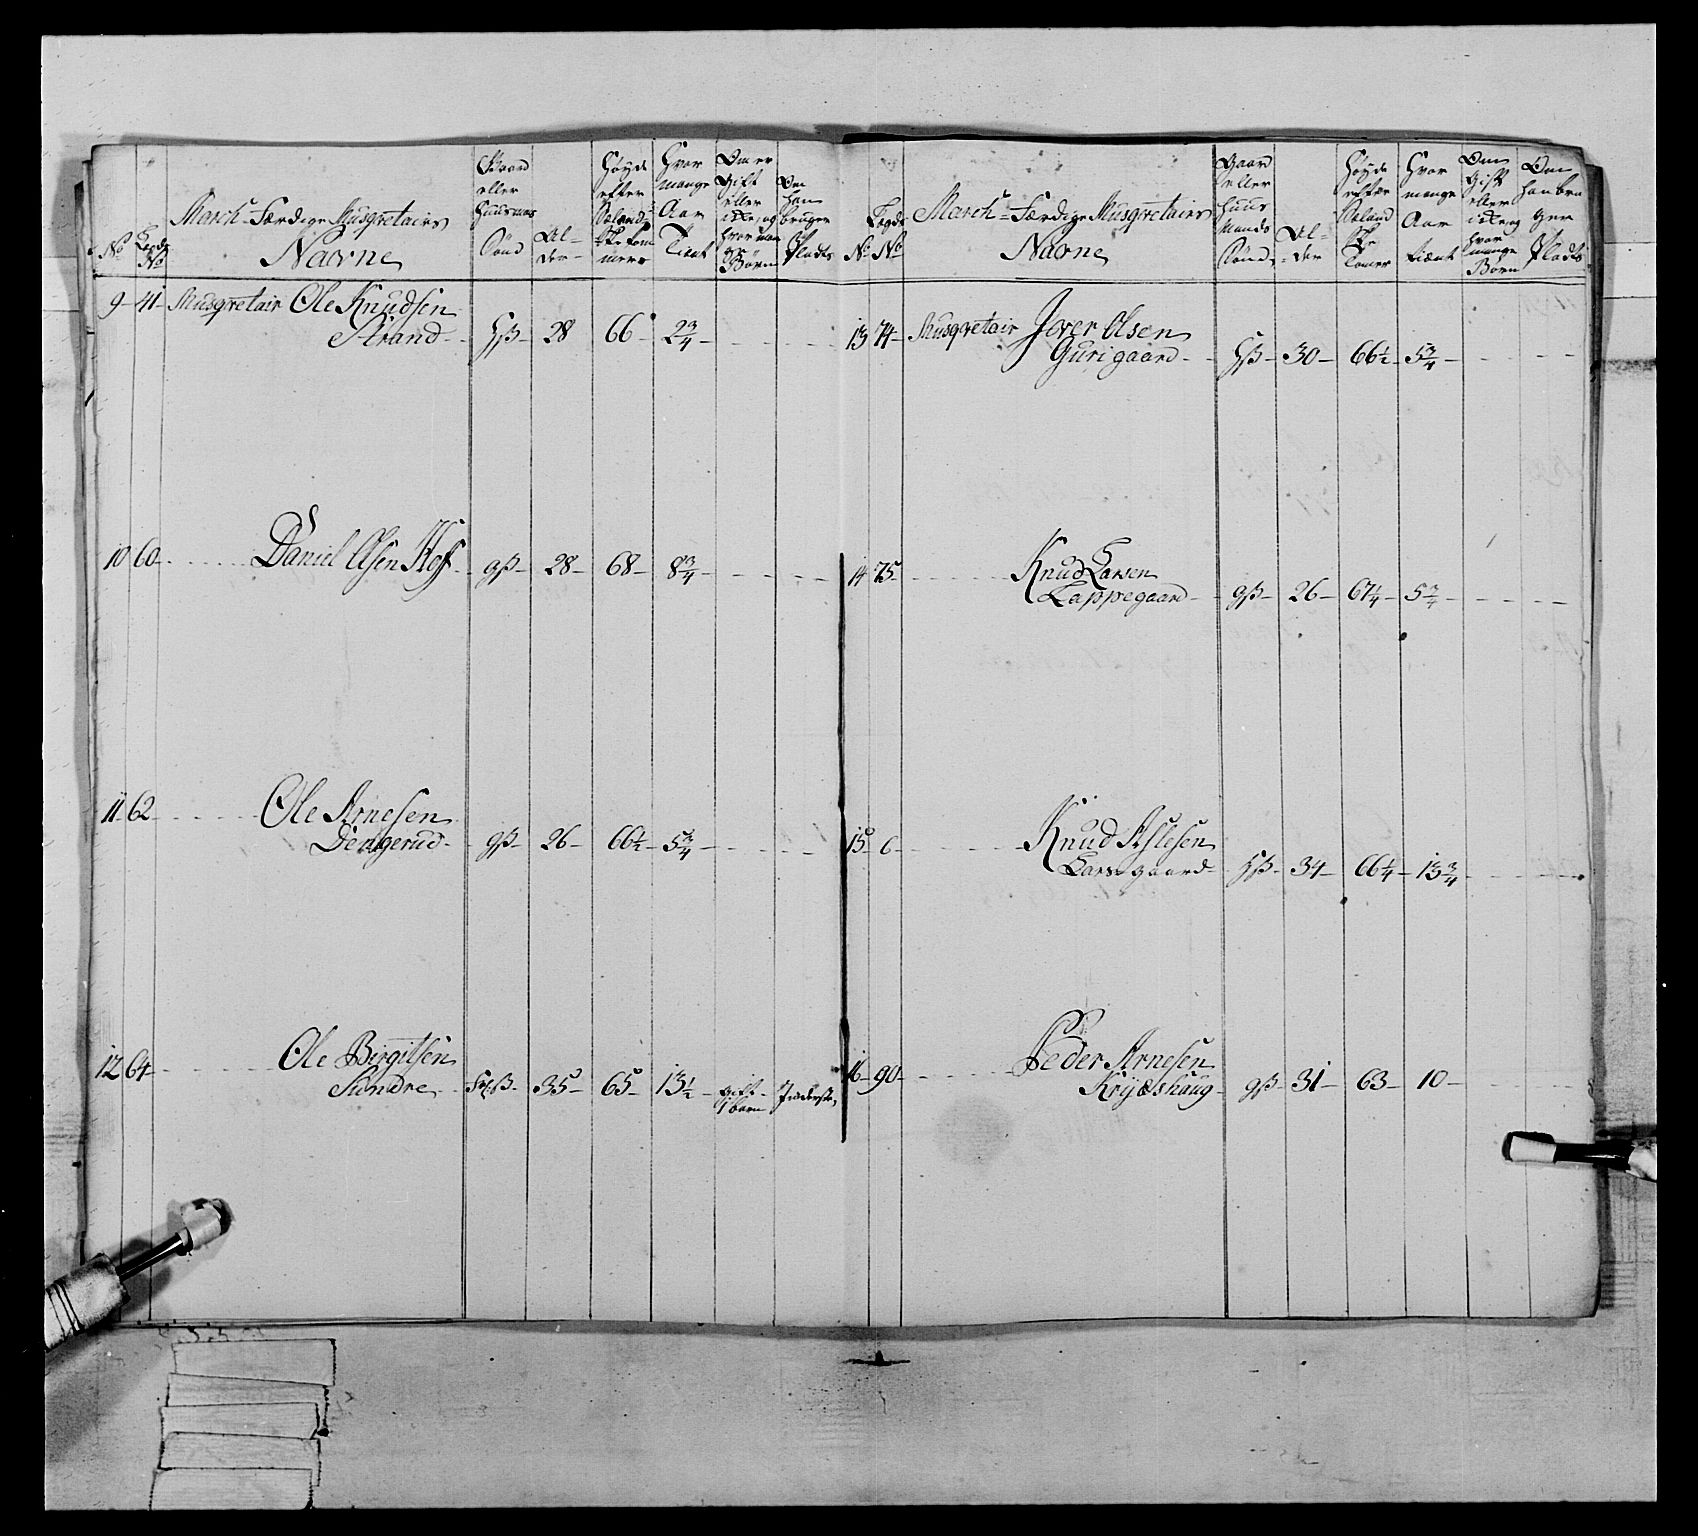 No
Legds No
March-Færdige Musqvetairs
Navne
Gaard eller Huusmans Sønd
Al-der
Høyde efter Sælands-ske Tommer
Hvor mange Aar Tient
Om er Gift eller ikke, og hvor mange Børn
Om han bruger Plads
9- 41- Musqvetair Ole Knudsen
Strand- Hß- 28 66 2 3/4 -
10 60 - Daniel Olsen Hoff- gß- 28- 68- 8 3/4 -
11- 62- Ole Arnesen
Dengerud- gß- 26- 66 1/2 - 5 3/4 -
12 64- Ole Birgitsen
Sundre- 35- 65- 13 1/2 - gift- 1 barn Inderste
No
Legds No
March-Færdige Musqvetairs
Navne
Gaard eller Huus Mands Sønd
Al-der
Høyde efter Sælandske Tomer
Hvor mange Aar tient
Om Gift eller ikke og hvor mange Børn
Om han bruger Plads
13 74- Musqvetair Iver Olsen
Gurigaard- Hß- 30- 66 1/2 - 5 3/4 -
14 75- Knud Larsen
Lappegaard- gß- 26- 67 1/4 - 5 3/4 -
15- 6- Knud Aslesen
Larsegaard- Hß- 34- 66 1/4 - 13 3/4
16- 90- Peder Arnesen
Krythshaug- gß- 31- 63- 10-